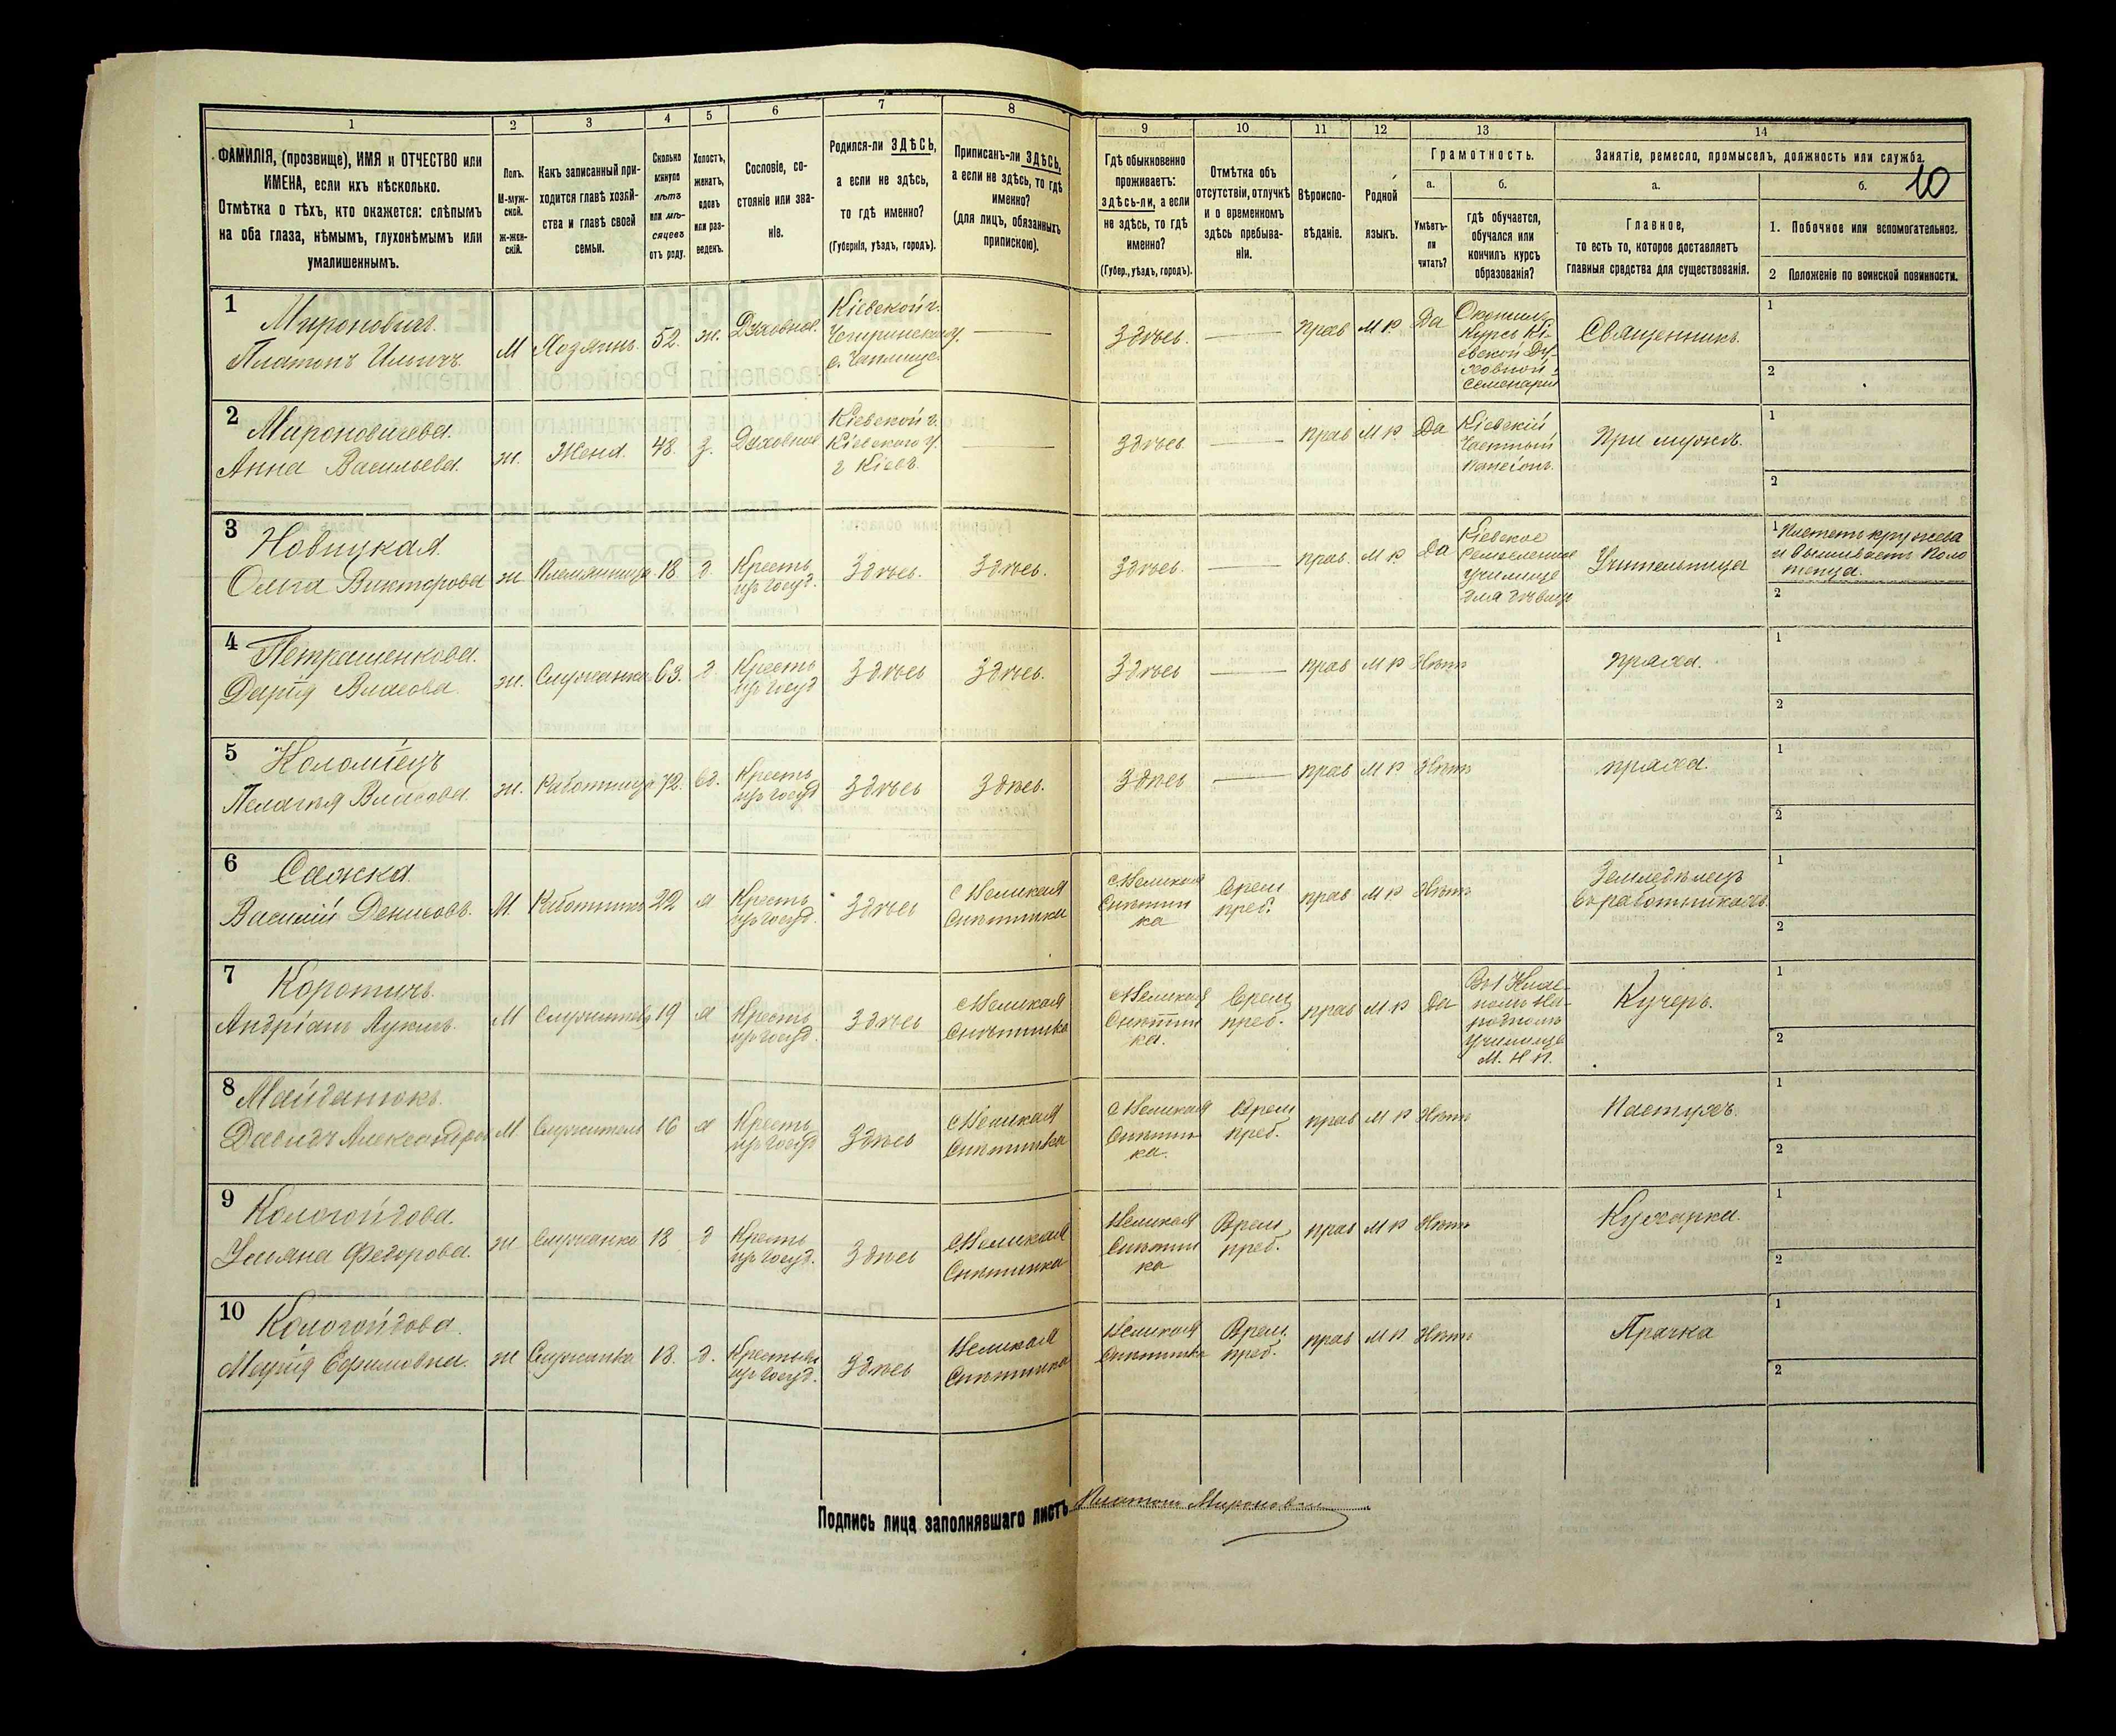 1
2
3
4
5
6
7
8
9
10
11
12
13
14
ФАМИЛІЯ, (прозвище), ИМЯ и ОТЧЕСТВО или
ИМЕНА, если ихъ нѣсколько.
Отмѣтка о тѣхъ, кто окажется: слѣпымъ
на оба глаза, нѣмымъ, глухонѣмымъ или
умалишеннымъ.
Полъ.
М-муж-
ской.
Ж-жен-
скій.
Какъ записанный при-
ходится главѣ хозяй-
ства и главѣ своей
семьи.
Сколько
минуло
лѣтъ
или мѣ-
сяцевъ
отъ роду.
Холостъ,
женатъ,
вдовъ
или раз-
веденъ.
Сословіе, со-
стояніе или зва-
ніе.
Родился-ли ЗДѢСЬ,
а если не здѣсь,
то гдѣ именно?
(Губернія, уѣздъ, городъ).
Приписанъ-ли ЗДѢСЬ,
а если не здѣсь, то гдѣ
именно?
(для лицъ, обязанныхъ
припискою).
Гдѣ обыкновенно
проживаетъ:
здѣсь-ли, а если
не здѣсь, то гдѣ
именно?
(Губер., уѣздъ, городъ).
Отмѣтка объ
отсутствіи, отлучкѣ
и о временномъ
здѣсь пребыва-
ніи.
Вѣроиспо-
вѣданіе.
Родной
языкъ.
Грамотность.
а.
б.
Умѣетъ-
ли
читать?
гдѣ обучается,
обучался или
кончилъ курсъ
образованія?
Занятіе, ремесло, промыселъ, должность или служба.
а.
б.
10
Главное,
то есть то, которое доставляетъ
главныя средства для существованія.
1. Побочное или вспомогательное.
2 Положеніе по воинской повинности.
1
Мироновичъ.
Платонъ Ильичъ.
М
Хозяинъ.
52.
ж.
Духовное.
Кіевской г.
Чигиринскаго у.
с. Чаплище
Здѣсь.
прав
М Р.
Да
Окончилъ
Курсъ Кі-
евской Ду-
ховной
Семенаріи
Священникъ.
1
2
2
Мироновичева.
Анна Васильева.
ж.
Жена.
48.
з.
Духовное
Кіевской г.
Кіевскаго у.
г Кіевъ.
здѣсь
прав
М Р.
Да
Кіевскій
Частный
пансіонъ.
При мужѣ.
1
2
3
Новицкая.
Ольга Викторова
ж
Племянница
18
д
Крестъ
изъ госуд.
Здѣсь.
Здѣсь.
Здѣсь
прав.
М Р
Да
Кіевское
Ремесленное
училище
для дѣвицъ
Учительница
1 Плететъ кружева
и вышиваетъ поло
тенца.
2
4
Петрашенкова.
Дарія Власова.
ж.
Служанка
63.
д.
Крестъ
изъ госуд
Здѣсь
Здѣсь.
Здѣсь
прав
М Р
Нѣтъ
пряха.
1
2
5
Коломіецъ
Пелагія Власова.
ж.
Работница
72.
вд.
Крестъ
изъ госуд
Здѣсь
Здѣсь.
Здѣсь
прав
М Р
Нѣтъ
пряха.
1
2
6
Сажка
Василій Денисовъ.
М.
Работникъ
22
х
Крестъ
изъ госуд.
Здѣсь
с Великая
Снѣтинка
с Великая
Снѣтин
ка
Врем
преб.
прав
М Р
Нѣтъ
Земледѣлецъ
въ работникахъ.
1
2
7
Коротичъ.
Андріанъ Лукинъ.
М
Служитель
19
х
Крестъ
изъ госуд.
Здѣсь
с Великая
Снѣтинка
с Великая
Снѣтин
ка.
Врем
преб.
прав
М Р
Да
Въ 1 Клас-
номъ На-
родномъ
Училище
М. Н П.
Кучеръ.
1
2
8
Майданюкъ.
Давидъ Александров
М
Служитель
16
х
Крестъ
изъ госуд
Здѣсь
с Великая
Снѣтинка
с Великая
Снѣтин
ка.
Врем
преб.
прав
М Р
Нѣтъ
Пастухъ.
1
2
9
Кологойдова.
Ульяна Федорова.
ж
Служанка
18
д
Крестъ
изъ госуд.
Здѣсь
с Великая
Снѣтинка
Великая
Снѣтин
ка
Врем
преб.
прав
М Р
Нѣтъ
Кухарка.
1
2
10
Кологойдова.
Марія Ефимовна.
ж
Служанка
18.
д.
Крестьян
изъ госуд.
Здѣсь
Великая
Снѣтинка
Великая
Снѣтинка
Врем.
преб.
прав
М Р
Нѣтъ
Прачка
1
2
Подпись лица заполнявшаго листъ Платонъ Мироновичъ